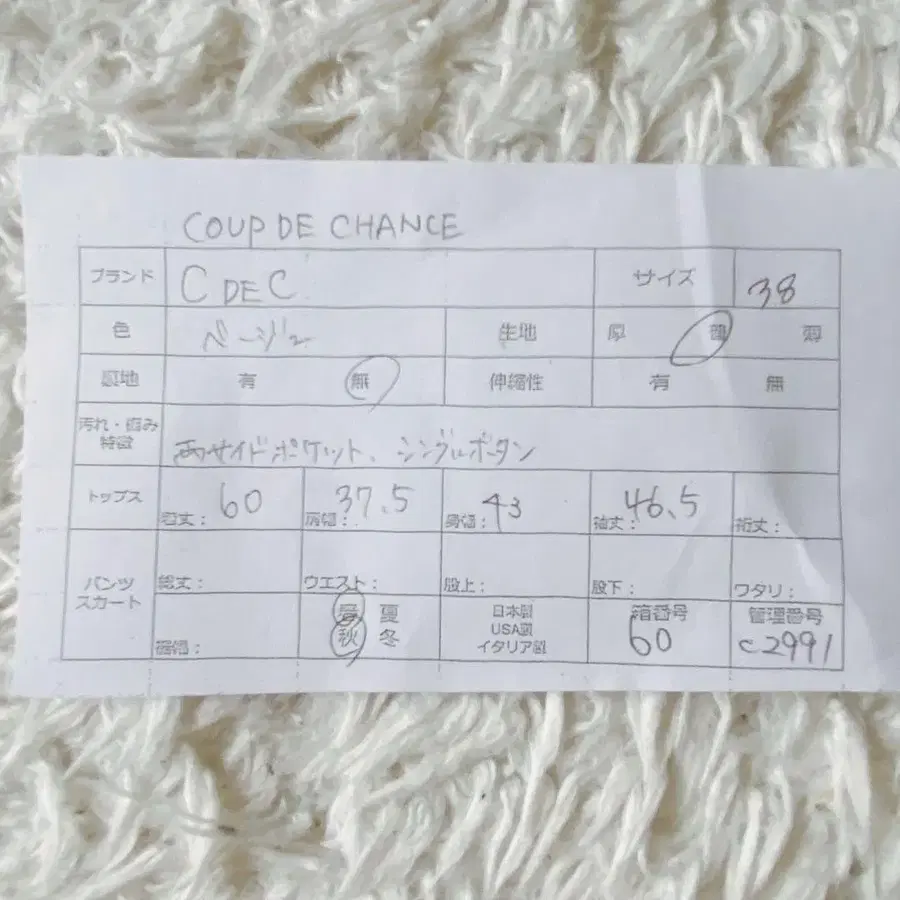 COUP DE CHANCE
ブランド C DE C サイズ 38
色 ベージュ 生地 厚 普 薄
裏地 有 無 伸縮性 有 無
汚れ・傷み
特徴 両サイドポケット、シングルボタン
トップス 着丈: 60 肩幅: 37.5 身幅: 43 袖丈: 46.5 裄丈:
パンツ
スカート 総丈: ウエスト: 股上: 股下: ワタリ:
裾幅: 春 夏
秋 冬 日本製
USA製
イタリア製 箱番号
60 管理番号
C2991